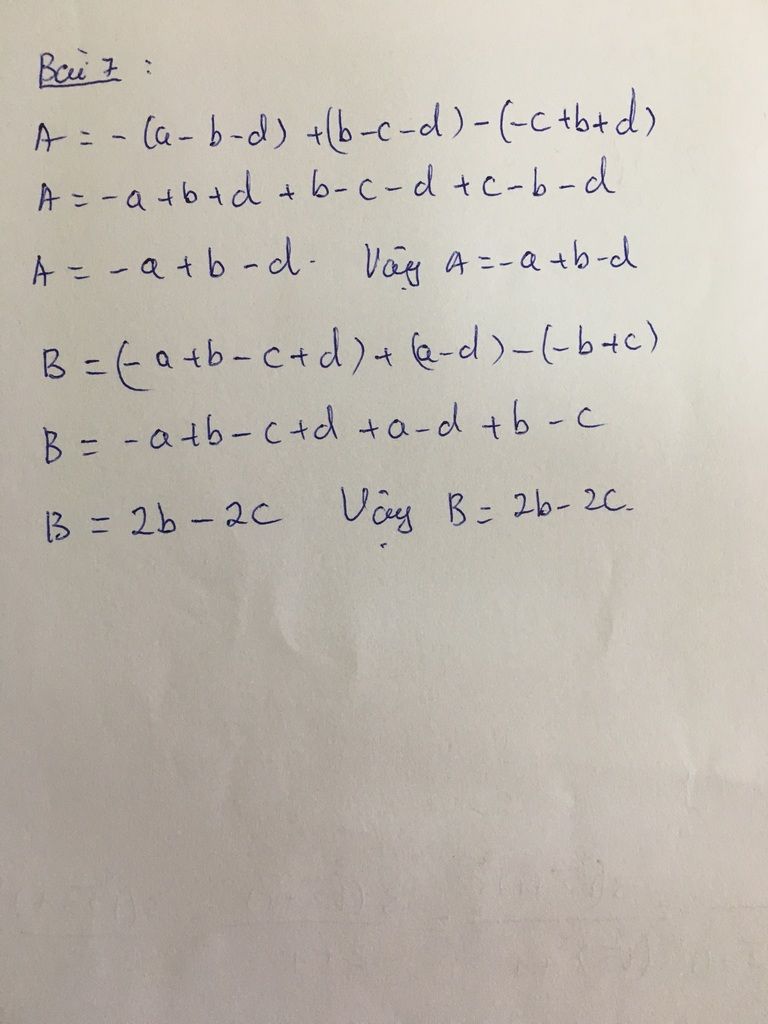 Bài 7 :
A = - (a - b - d) + (b - c - d) - (-c + b + d)
A = -a + b + d + b - c - d + c - b - d
A = -a + b - d. Vậy A = -a + b - d
B = (-a + b - c + d) + (a - d) - (-b + c)
B = -a + b - c + d + a - d + b - c
B = 2b - 2c Vậy B = 2b - 2c.